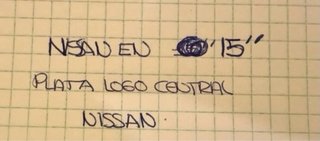 NISSAN EN 15"
PLATA LOGO CENTRAL
NISSAN